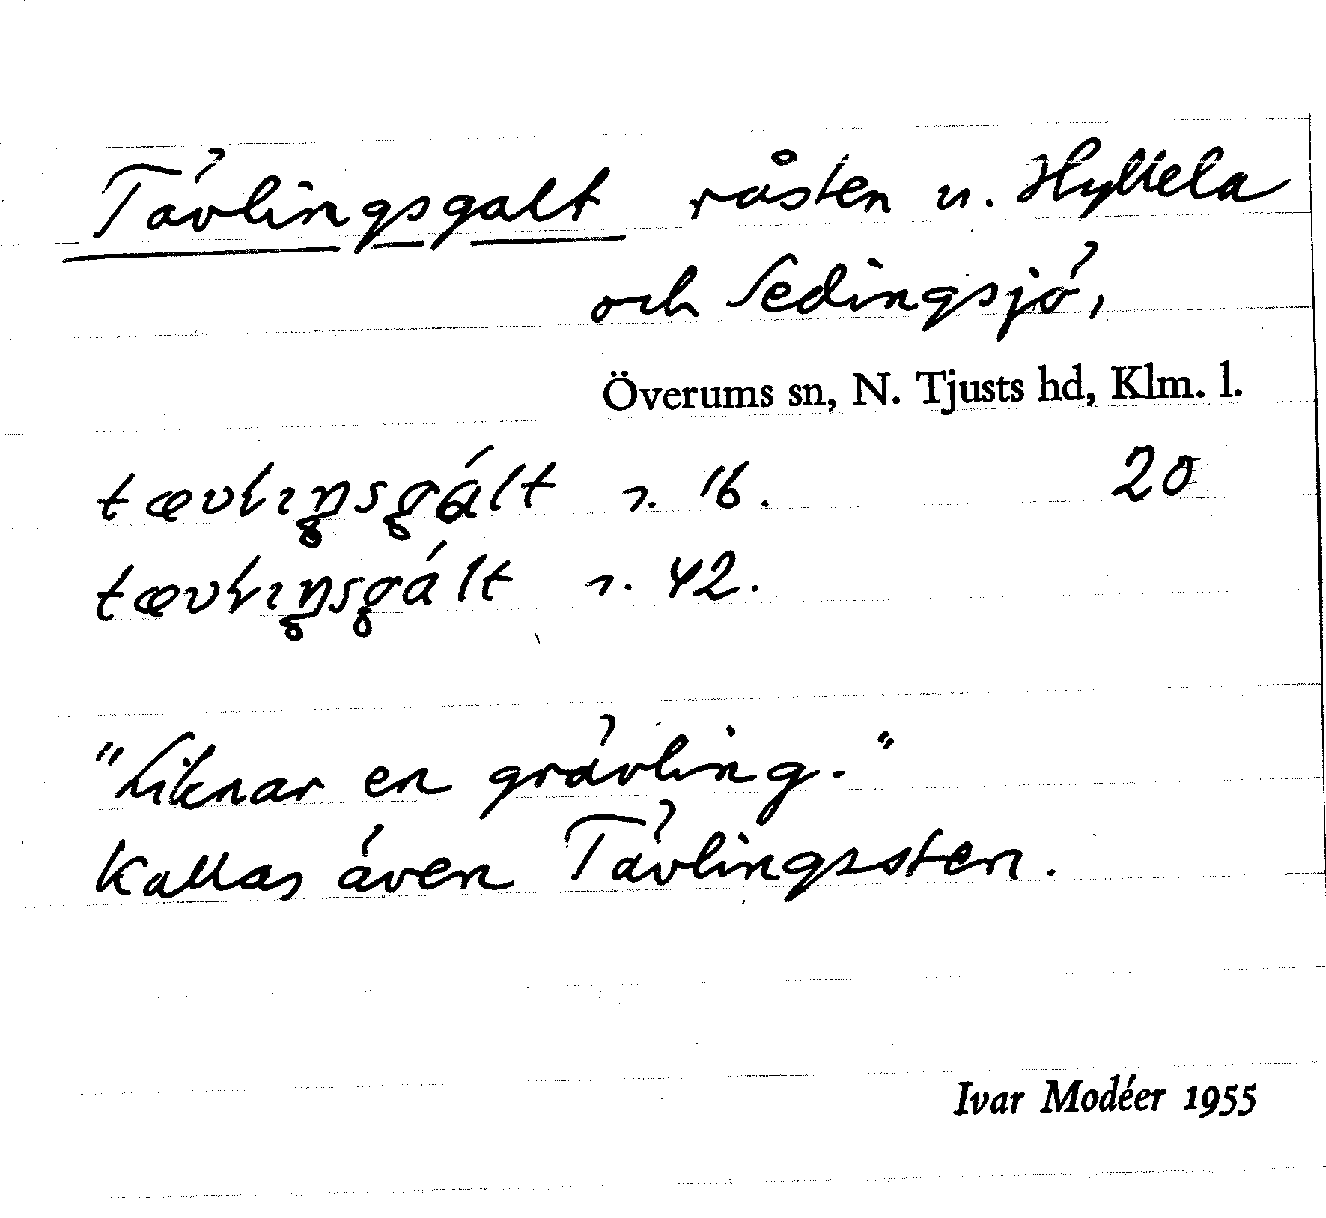 Tävlingsgalt råsten u. Hyllela
och Sedingsjö,
Överums sn, N. Tjusts hd, Klm. l.
tævlıŋsgált r. 16. 20
tævlıŋsgált r. 42.
"Liknar en grävling."
Kallas även Tävlingssten.
Ivar Modéer 1955